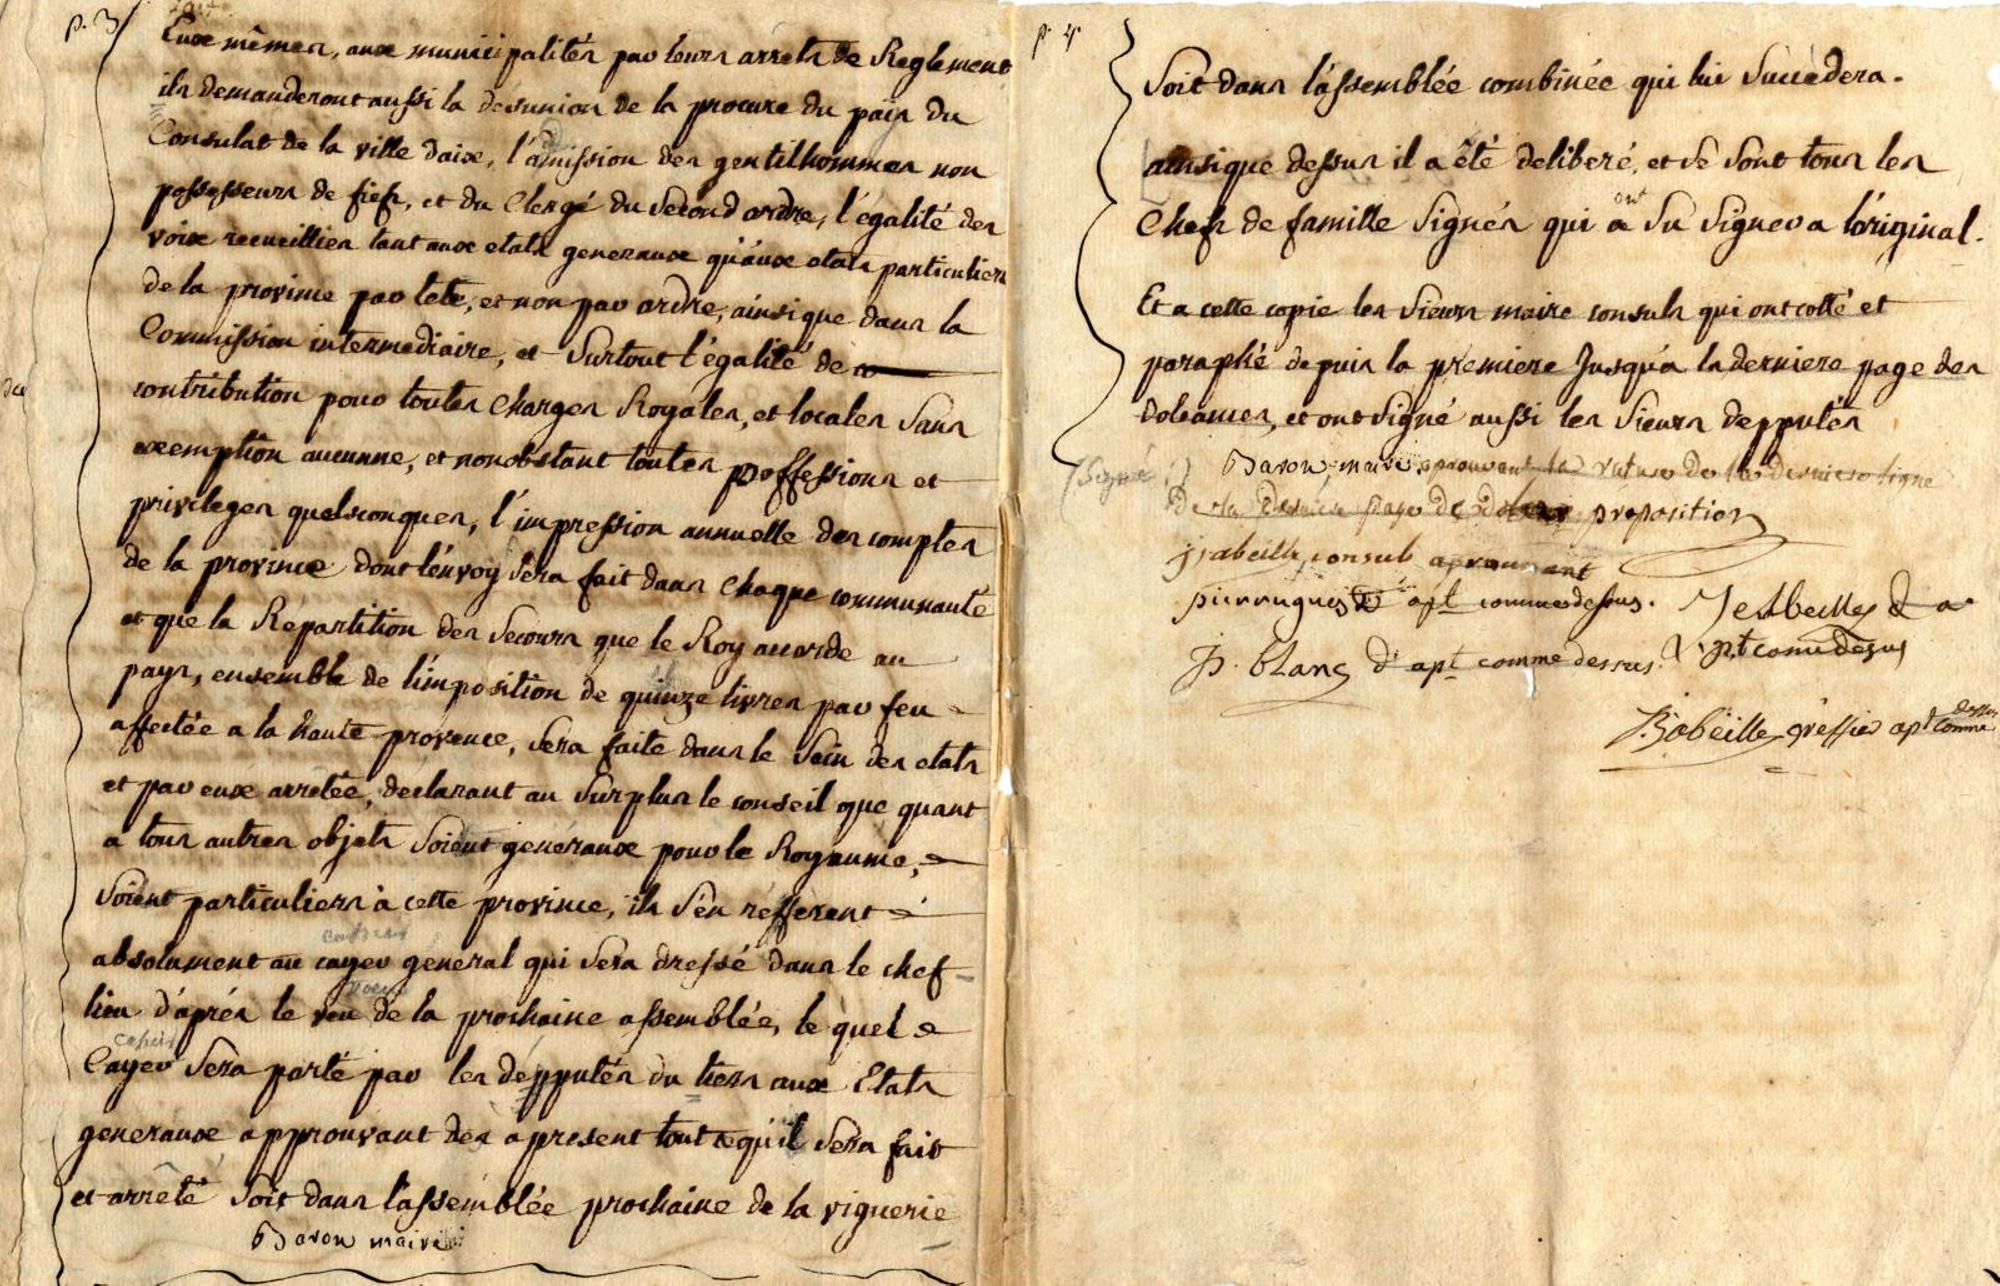 p. 3
Euxmêmes, aux municipalités par leurs arrets de Reglement
ils demanderont aussi la desunion de la procure du païs du
Consulat de la ville daix, l'amission des gentilhommes non
possesseurs de fiefs, et du Clergé du Second ordre, l'égalité des
voix recueillies tant aux etats generaux qu'aux etats particuliers
de la province par tete, et non par ordre, ainsi que dans la
Commission intermediaire, et Surtout l'égalité de
contribution pour toutes Charges Royales, et locales Sans
exemption aucunne, et nonobstant toutes poffessions et
privileges quelsconques, l'impression annuelle des comptes
de la province dont l'envoy Sera fait dans Chaque communauté
et que la Répartition des Secours que le Roy accorde au
pays, ensemble de l'imposition de quinze livres par feu
affectée a la haute provence, Sera faite dans le Sein des etats
et par eux arretée, déclarant au Surplus le conseil que quant
a tous autres objets Soient généraux pour le Royaume,
Soient particuliers à cette province, ils S'en réfferent
absolument au cayer general qui Sera dressé dans le chef
cahier
lieu d'après le veu de la prochaine assemblée, le quel
voeu
Cayer Sera porté par les députtés du tiers aux Etats
cahier
generaux approuvant des apresent tout ce qu'il Sera fait
et arrêté Soit dans l'assemblée prochaine de la viguerie
Baron maire
des
p. 4
Soit dans l'assemblée combinée qui lui Succedera.
ainsi que dessus il a été deliberé, et Se Sont tous les
Chefs de famille Signés qui a Su Signer a l'original.
ont
Et a cette copie les Sieurs maire consuls qui ont cotté et
paraphé depuis la premiere Jusqu'a la derniere page des
doleances, et ont Signé aussi les Sieurs depputés
(Signé :) Baron, maire aprouvant la rature de la derniere ligne
de la page de proposition
jsabeille, consul aprouvant
pierrugues apt comme dessus.
apt come desus
P. blanc d. apt comme dessus.
Isabeille greffier apt comme
dessus